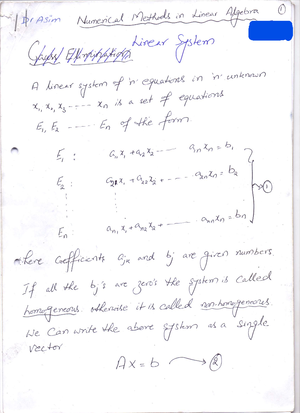 Dr Asim Numerical Methods in Linear Algebra ①
Linear System
A linear system of 'n' equations in 'n' unknown
x₁, x₂, x₃ ---- xₙ is a set of equations
E₁, E₂ ---- Eₙ of the form
E₁ : a₁₁x₁ + a₁₂x₂ ---- a₁ₙxₙ = b₁
E₂ : a₂₁x₁ + a₂₂x₂ + ---- a₂ₙxₙ = b₂ → ①
Eₙ : aₙ₁x₁ + aₙ₂x₂ + ---- aₙₙxₙ = bₙ
here coefficients aⱼₙ and bⱼ are given numbers
If all the bⱼ's are zero's the system is called
homogeneous. otherwise it is called non-homogeneous
We Can write the above system as a single
vector
AX = b → ②